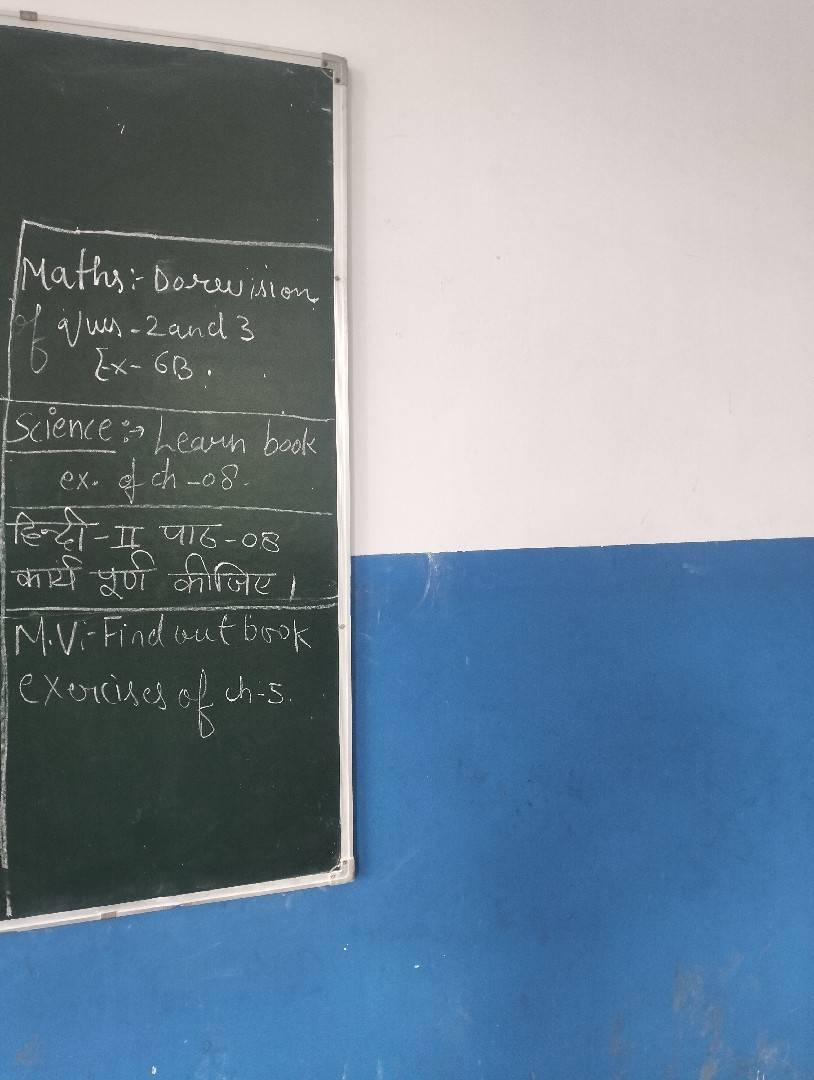 Maths:- Do revision
of Ques-2 and 3
Ex-6B.
Science:→ Learn book
ex. of ch-08.
हिन्दी-II पाठ-08
कार्य पूर्ण कीजिए।
M.V:-Find out book
exercises of ch-5.